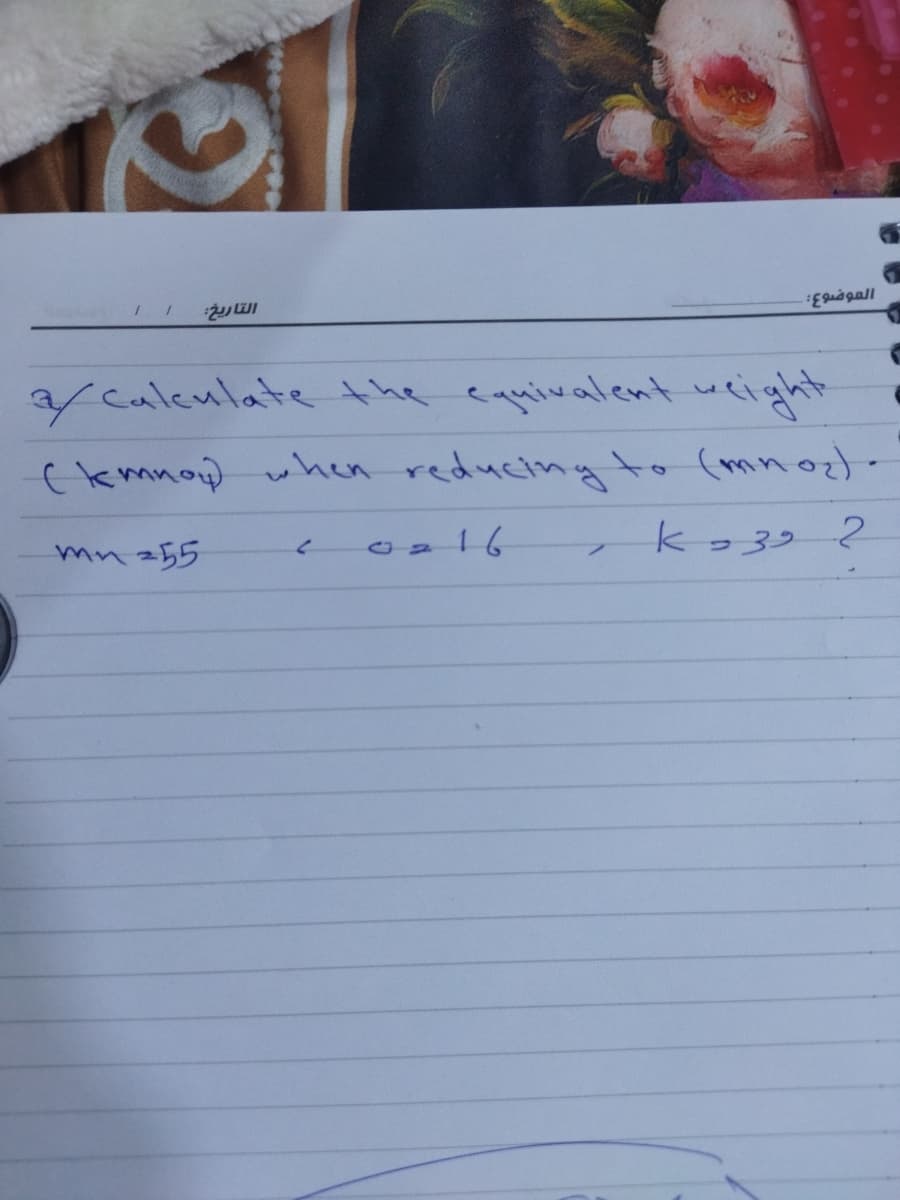 الموضوع:
التاريخ: / /
Q/ Calculate the equivalent weight
(kmno4) when reducing to (mno2).
mn=55 , o=16 , k=39 ?